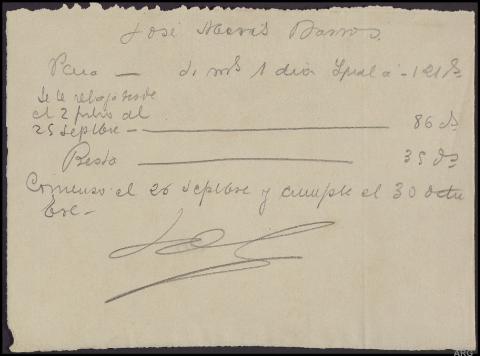 José Barros
Para — di ms 1 dia Igual a - 121 Ds
Se le rebaja desde
el 2 Julio al
25 Septbre — 86 ds
Resta — 35 ds
Comenzo el 26 Septbre y cumple el 30 octu
bre -
ARG